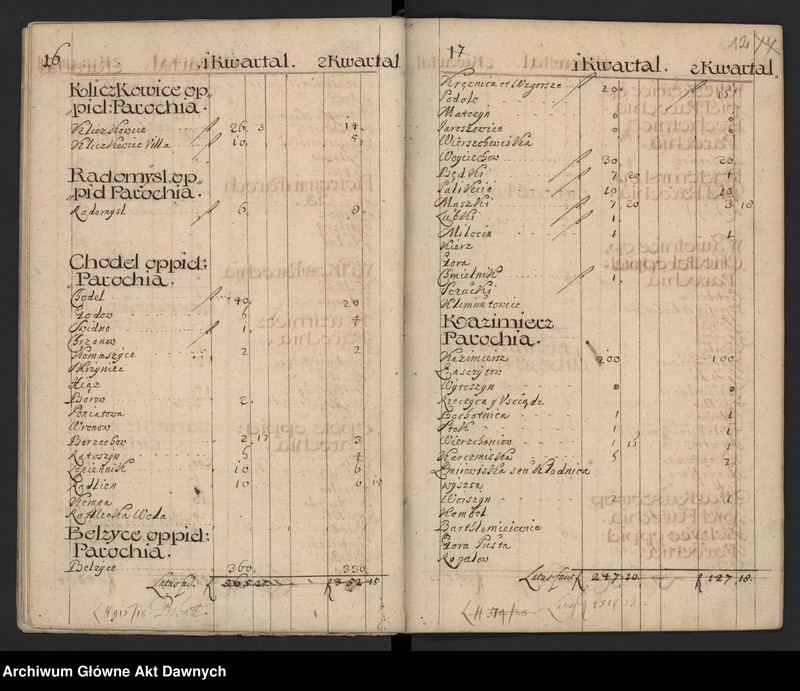 16 1 Kwartal. 2 Kwartal
KliczKowice op„
„pid: Parochia.
Kliczkowice 26 3 14
Kliczkowice Villa 10 5
Radomysl op„
„pid Parochia.
Radomysl 6 8
Chodel oppid:
Parochia.
Godel 40 20
Godow 6 4
Swidno 1
Grzanow
Komaszyce 2 2
Skrzyniec
Borow 2
Poniatowa
Wronow
Borzechow 2 17 3
Ratoszyn 5 4
10 6
Radlien 10 6 15
Kempa
Wola
Belzyce oppid:
Parochia.
Belzyce 360 330
Latus fac. 565 27 352 15
17 12 74
1 Kwartal. 2 Kwartal
Krężnica et Wzgorsze 20 15
Podole
Matczyn
Jaroszewice
Wierszchowiska
Woyciechow 30 20
Będki 7 20 4
Palikije 10 13
Maszki 7 20 3 18
Łubki 1
Milocin 1 1
Kierz
Gora
Gmielnik 1
Sczucki
Klimuntowice
Koazimierz
Parochia.
Kazimierz 200 100
Wyloszyn
Rzeczyca y Usciądz
Bochotnica 1 1
Stok 1 1
Wierzchoniow 1 15 1
Karczmiska 5 2
Zmiowiska seu Kłodnica
wyszsa
Woiszyn 2 1
Kembel
Bartłomieiowice
Gora Pusta
Rogalow
Latus facit 247 10 127 18
Archiwum Główne Akt Dawnych